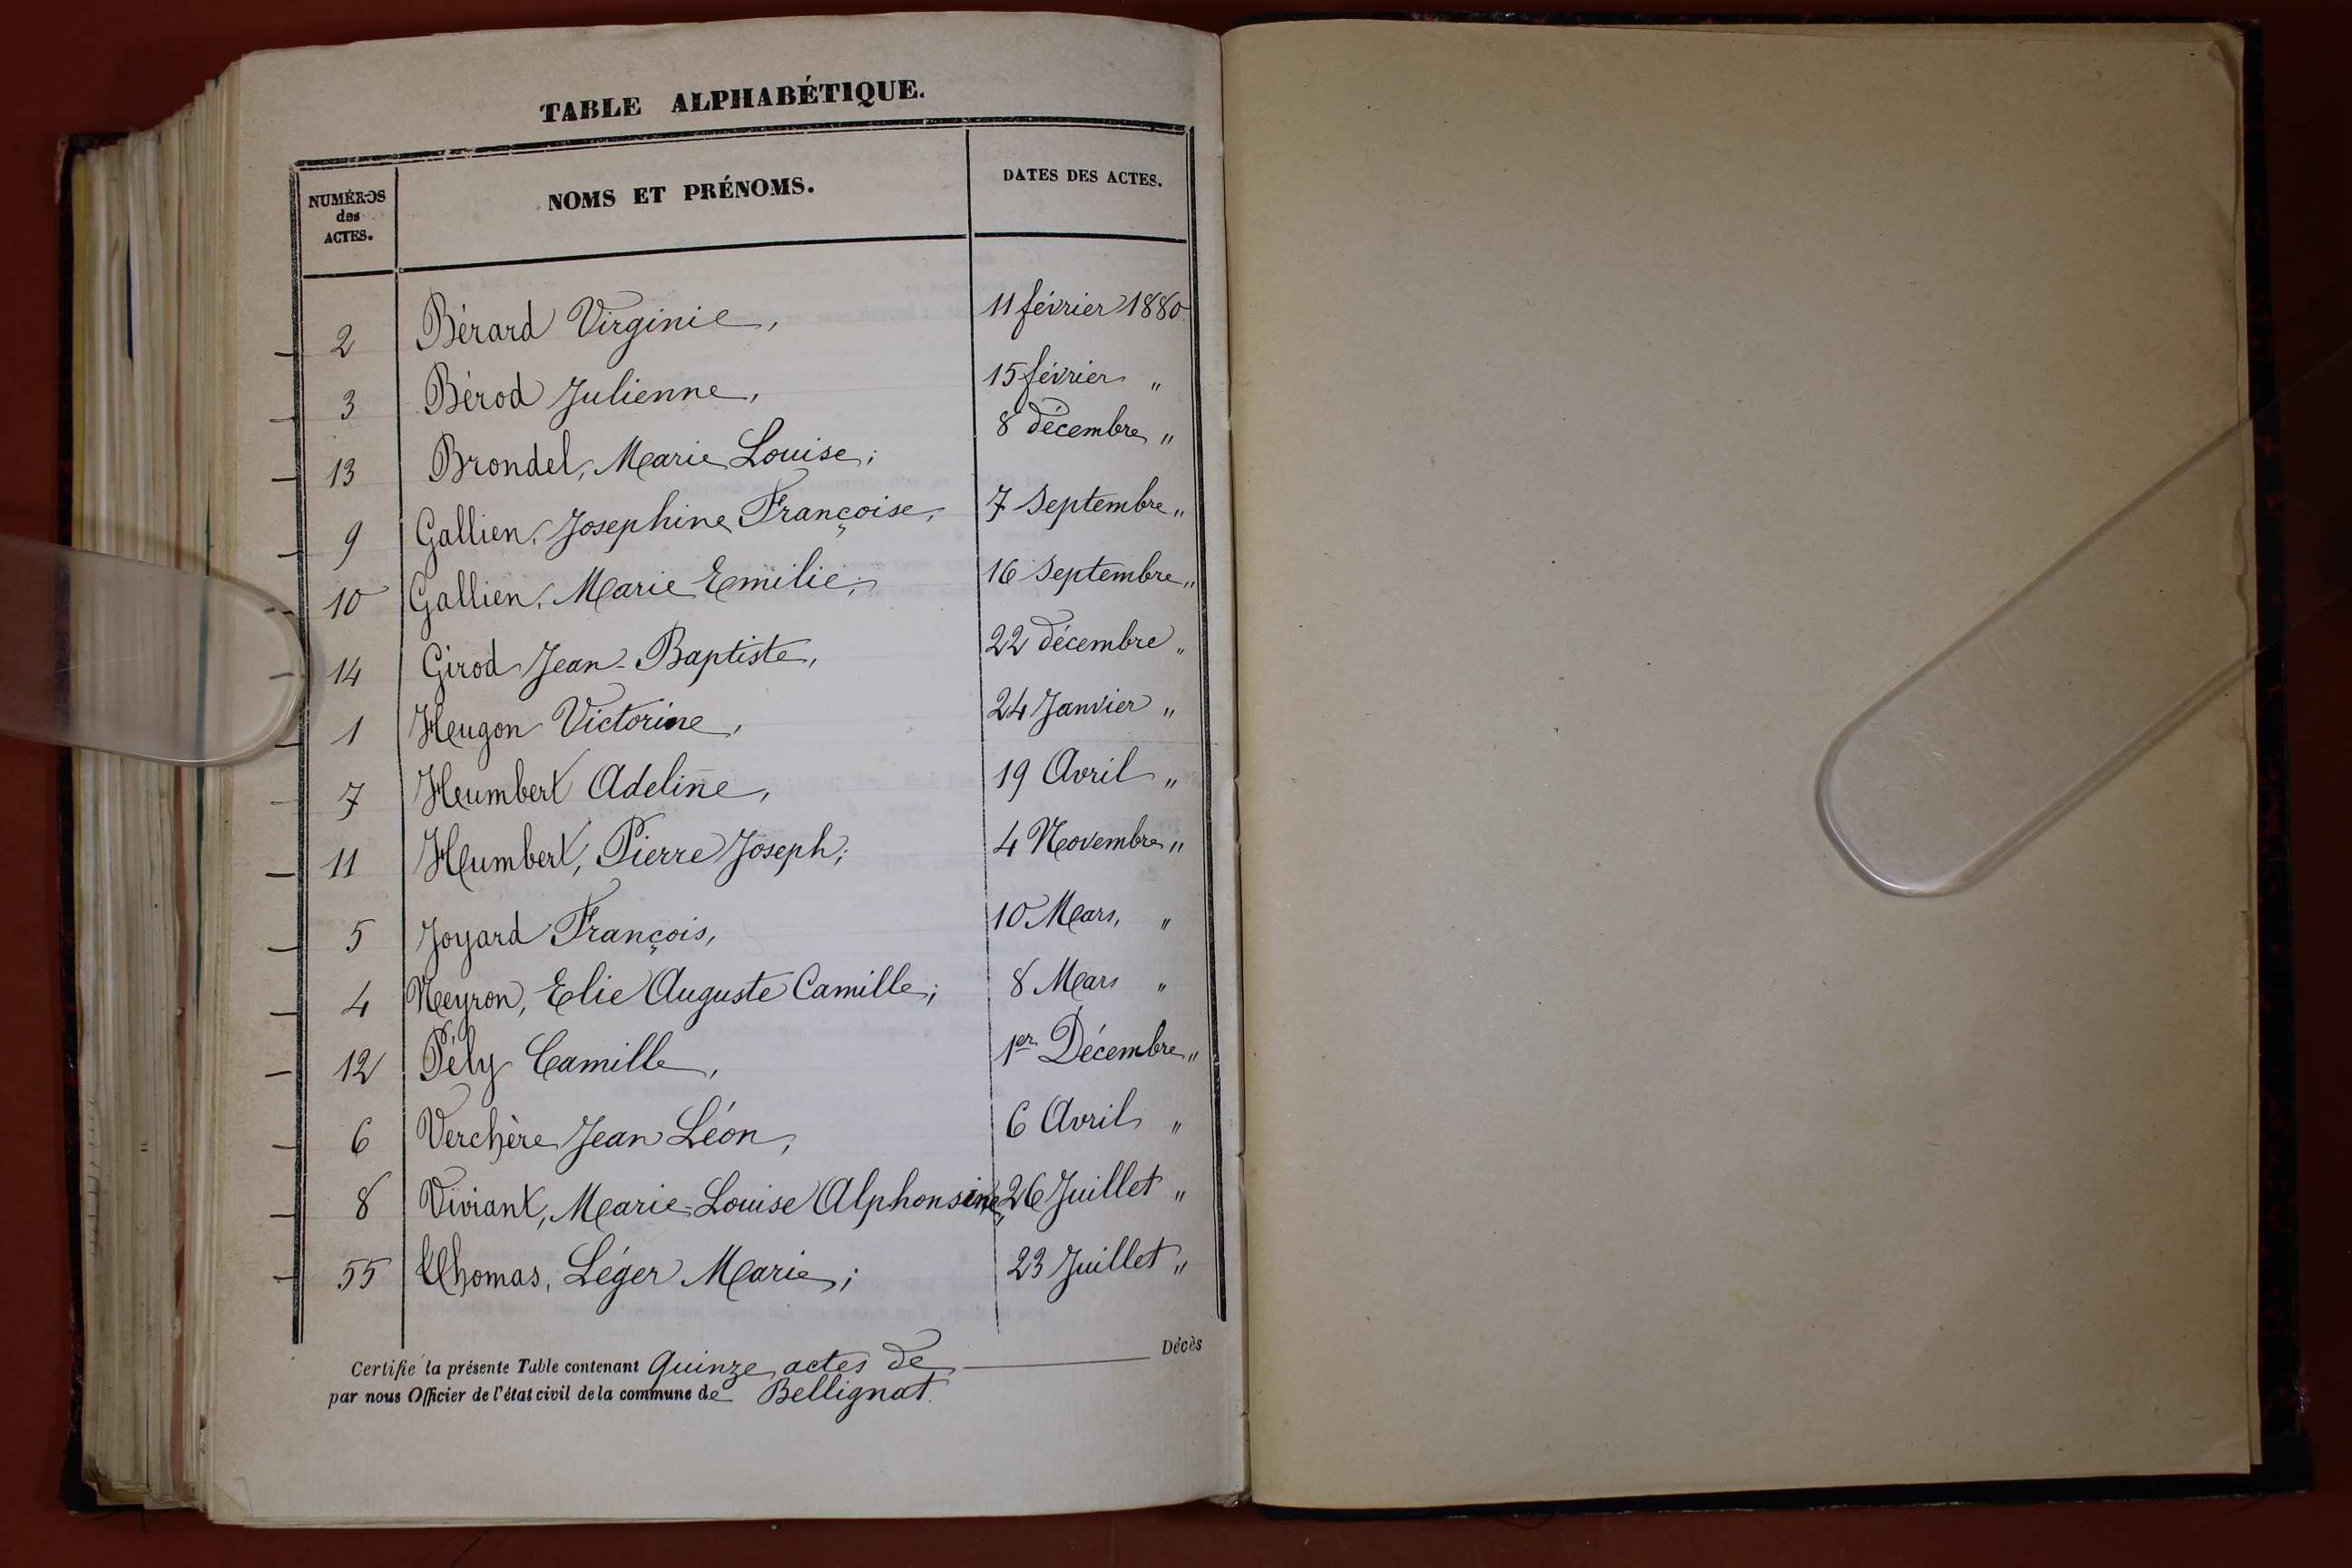 TABLE ALPHABÉTIQUE.
NUMÉROS
des
ACTES.
NOMS ET PRÉNOMS.
DATES DES ACTES.
2 Bérard Virginie, 11 février 1880.
3 Bérod Julienne, 15 février "
13 Brondel, Marie Louise; 8 décembre "
9 Gallien, Josephine Françoise, 7 Septembre "
10 Gallien, Marie Emilie; 16 Septembre "
14 Girod Jean-Baptiste, 22 décembre "
1 Hugon Victorine, 24 Janvier "
7 Humbert Adeline, 19 Avril "
11 Humbert, Pierre Joseph; 4 Novembre "
5 Joyard François, 10 Mars, "
4 Neyron, Elie Auguste Camille; 8 Mars "
12 Pély Camille, 1er Décembre "
6 Verchère Jean Léon, 6 Avril "
8 Viviant, Marie-Louise Alphonsine, 26 Juillet "
55 Thomas, Léger Marie; 23 Juillet "
Certifié la présente Table contenant Quinze actes de Décès
par nous Officier de l'état civil de la commune de Bellignat.